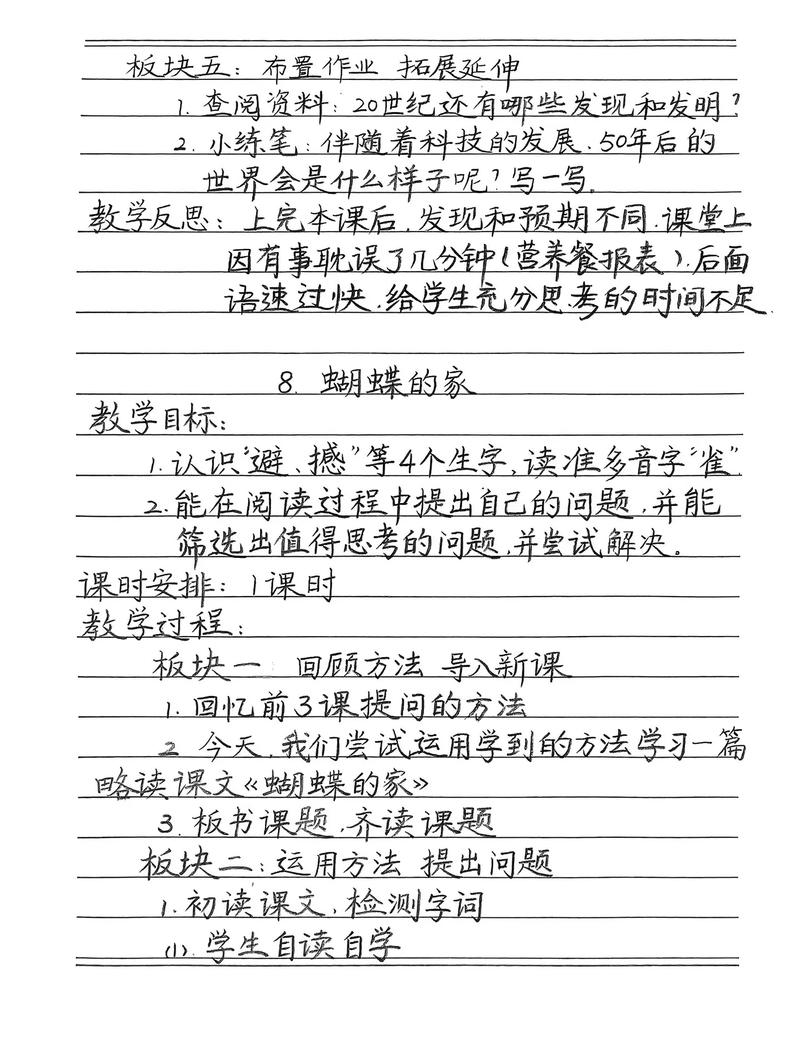 板块五：布置作业 拓展延伸
1. 查阅资料：20世纪还有哪些发现和发明？
2. 小练笔：伴随着科技的发展、50年后的
世界会是什么样子呢？写一写。
教学反思：上完本课后，发现和预期不同．课堂上
因有事耽误了几分钟（营养餐报表），后面
语速过快．给学生充分思考的时间不足．
8. 蝴蝶的家
教学目标：
1. 认识“避、撼”等4个生字，读准多音字“雀”．
2. 能在阅读过程中提出自己的问题，并能
筛选出值得思考的问题，并尝试解决。
课时安排：1课时
教学过程：
板块一 回顾方法 导入新课
1. 回忆前3课提问的方法
2. 今天，我们尝试运用学到的方法学习一篇
略读课文《蝴蝶的家》
3. 板书课题，齐读课题
板块二：运用方法 提出问题
1. 初读课文，检测字词
(1). 学生自读自学